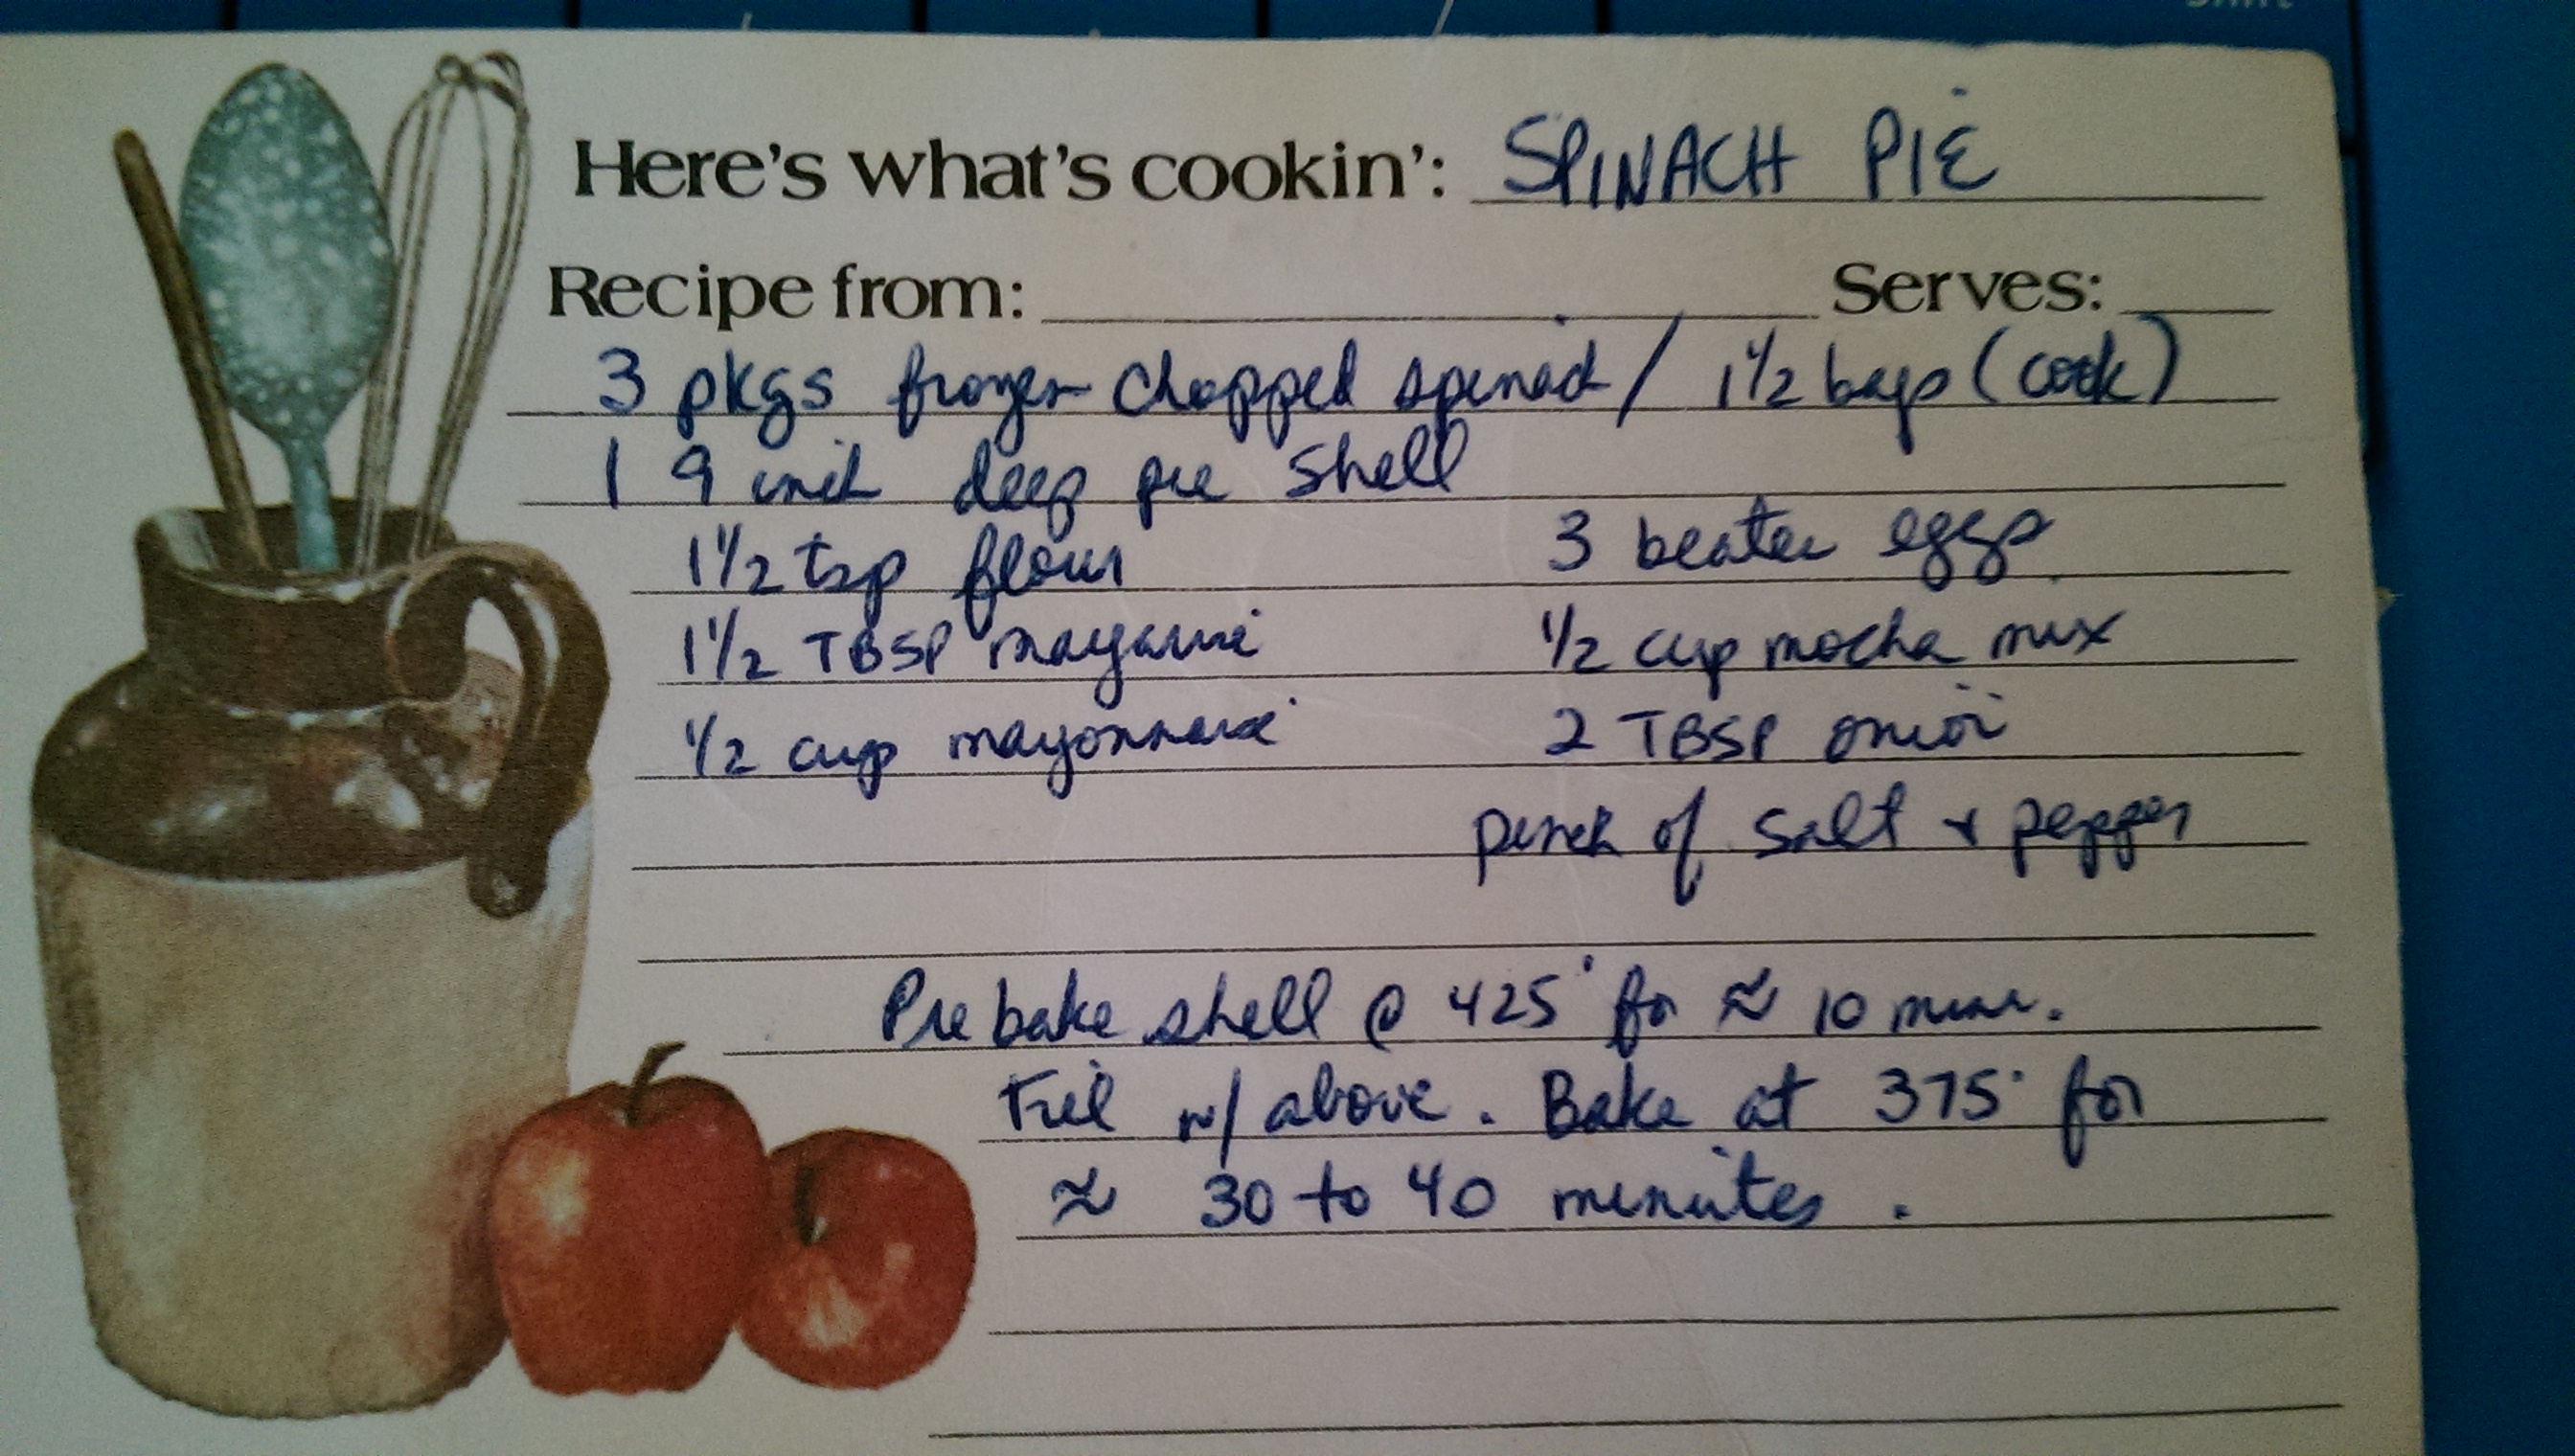 Here's what's cookin': SPINACH PIE
Recipe from: Serves:
3 pkgs frozen chopped spinach / 1 1/2 bags (cook)
1 9 inch deep pie shell
1 1/2 tsp flour 3 beaten eggs
1 1/2 TBSP margarine 1/2 cup mocha mix
1/2 cup mayonnaise 2 TBSP onion
pinch of salt & pepper
Pre bake shell @ 425° for ≈ 10 mins.
Fill w/ above. Bake at 375° for
≈ 30 to 40 minutes.